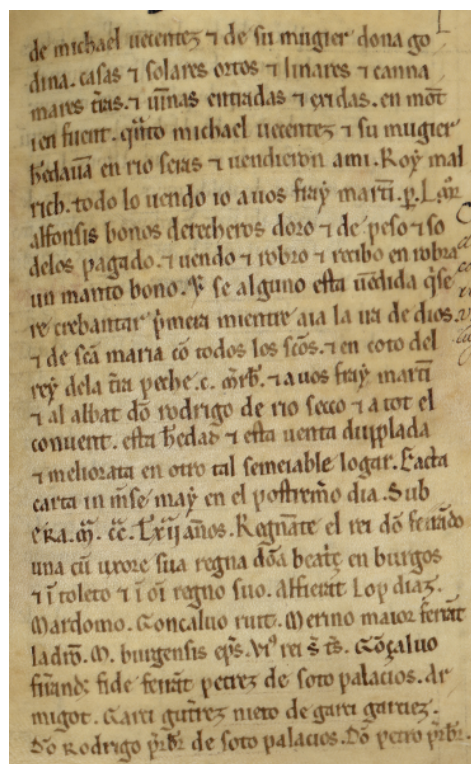 de michael uecentez ⁊ de su mugier dona go
dina. casas ⁊ solares ortos ⁊ linares ⁊ canna
mares tr̃as. ⁊ uin̄as entradas ⁊ exidas. en mõt
⁊ en fuent. q̃nto michael uecentez ⁊ su mugier
h̃edauã en rio seras ⁊ uendieron ami. Roẏ mal
rich. todo lo uendo io auos fraẏ martĩ. p̱. L. mr̃
alfonsis bonos derecheros doro ⁊ de peso ⁊ so
delos pagado. ⁊ uendo ⁊ robro ⁊ recibo en robra
un manto bono. se alguno esta uẽdida q̃se
re crebantar p̃mera mientre aia la ira de dios.
⁊ de sc̃a maria cõ todos los sc̃os. ⁊ en coto del
reẏ dela tr̃ra peche. c. mr̃b. ⁊ a uos fraẏ martĩ
⁊ al abat dõ rodrigo de rio secco ⁊ a tot el
conuent. esta h̃edad ⁊ esta uenta dupplada
⁊ meliorata en otro tal semeiable logar. Facta
carta in m̃se maẏ en el postrem̃o dia. Sub
era. m̃. c̃c̃. Lxij. ãnos. Regnãte el rei dõ ferrãdo
una cũ uxore sua regna dõa beat̃ç en burgos
⁊ ĩ toleto ⁊ ĩ oĩ regno suo. Alfierit Lop diaz.
Mardomo. Goncaluo ruit. Merino maior ferrãt
ladrõ. M. burgensis ep̃s. rei t̃s. Gõçaluo
fide ferrãt petrez de soto palacios. Ar
migot. Garci gut̃rez nieto de garci garciez.
Dõ Rodrigo p̃rb̃r de soto palacios. Dõ petro p̃rb̃r.